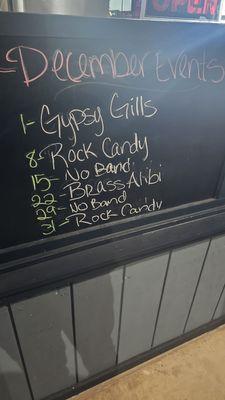 OPEN
-December Events-
1- Gypsy Gills
8- Rock Candy
15- No Band
22- Brass Alibi
29- No Band
31- Rock Candy